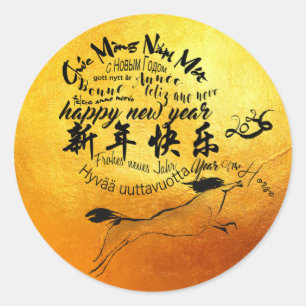 Chúc Mừng Năm Mới
с Новым Годом
gott nytt år Année
Bonne feliz ano novo
felice anno nuovo
happy new year
新年快乐
2026
Frohes neues Jahr
Year Of the Horse
Hyvää uuttavuotta